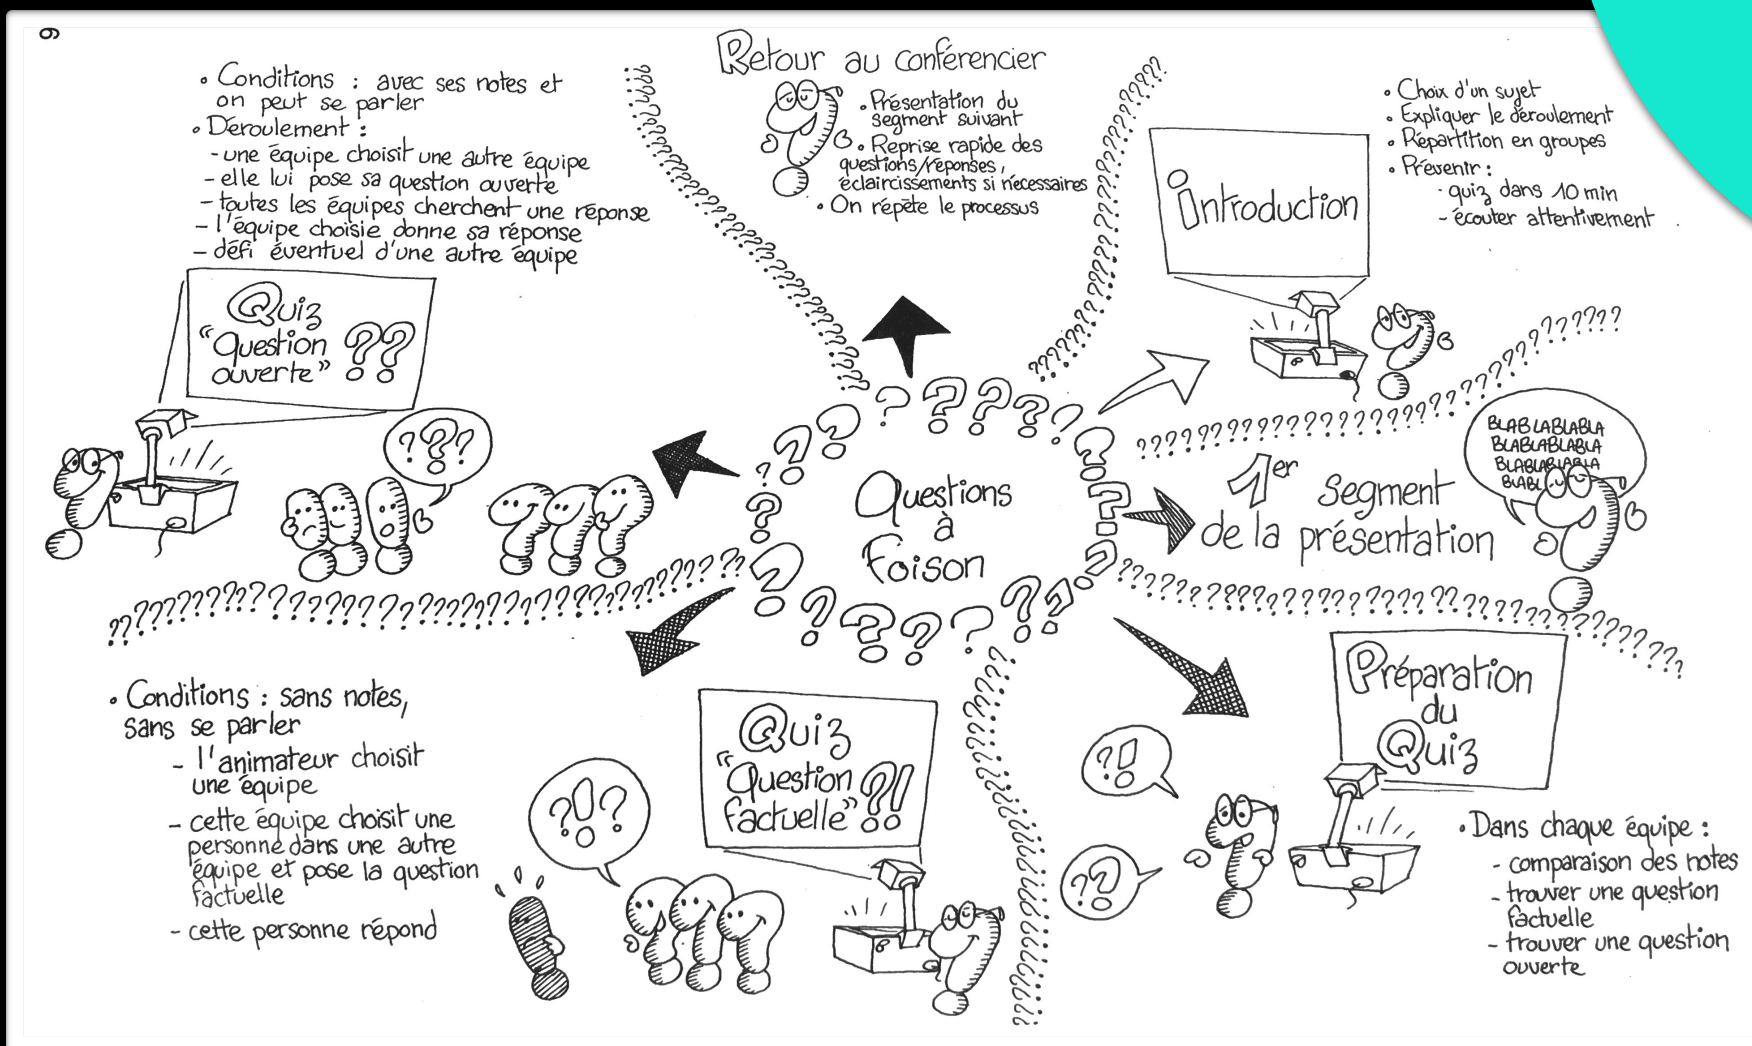 9
Questions
à
Foison
Introduction
• Choix d'un sujet
• Expliquer le déroulement
• Répartition en groupes
• Prévenir :
- quiz dans 10 min
- écouter attentivement
1er segment
de la présentation
BLABLABLABLA
BLABLABLABLA
BLABLABLABLA
BLABL
Préparation
du
Quiz
?!
??
• Dans chaque équipe :
- comparaison des notes
- trouver une question
factuelle
- trouver une question
ouverte
Quiz
"Question
factuelle" ?!
?!?
• Conditions : sans notes,
sans se parler
- l'animateur choisit
une équipe
- cette équipe choisit une
personne dans une autre
équipe et pose la question
factuelle
- cette personne répond
Quiz
"Question
ouverte" ??
???
• Conditions : avec ses notes et
on peut se parler
• Déroulement :
- une équipe choisit une autre équipe
- elle lui pose sa question ouverte
- toutes les équipes cherchent une réponse
- l'équipe choisie donne sa réponse
- défi éventuel d'une autre équipe
Retour au conférencier
• Présentation du
segment suivant
• Reprise rapide des
questions/réponses,
éclaircissements si nécessaires
• On répète le processus